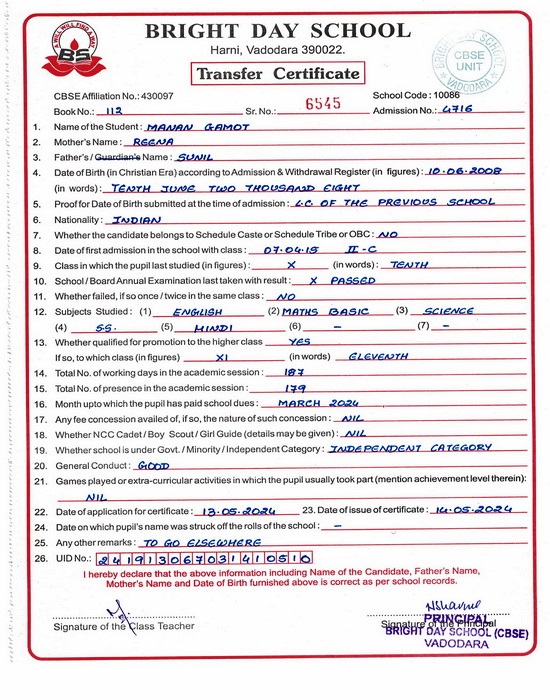 A WILL WILL FIND A WAY
BS
BRIGHT DAY SCHOOL
Harni, Vadodara 390022.
Transfer Certificate
BRIGHT DAY SCHOOL
CBSE
UNIT
VADODARA
CBSE Affiliation No.: 430097 School Code : 10086
Book No.: 112 Sr. No.: 6545 Admission No.: 4716
1. Name of the Student : MANAN GAMOT
2. Mother's Name : REENA
3. Father's / Guardian's Name : SUNIL
4. Date of Birth (in Christian Era) according to Admission & Withdrawal Register (in figures) : 10.06.2008
(in words) : TENTH JUNE TWO THOUSAND EIGHT
5. Proof for Date of Birth submitted at the time of admission : L.C. OF THE PREVIOUS SCHOOL
6. Nationality : INDIAN
7. Whether the candidate belongs to Schedule Caste or Schedule Tribe or OBC : NO
8. Date of first admission in the school with class : 07.04.15 II-C
9. Class in which the pupil last studied (in figures) : X (in words) : TENTH
10. School / Board Annual Examination last taken with result : X PASSED
11. Whether failed, if so once / twice in the same class : NO
12. Subjects Studied : (1) ENGLISH (2) MATHS BASIC (3) SCIENCE
(4) S.S. (5) HINDI (6) – (7) –
13. Whether qualified for promotion to the higher class YES
If so, to which class (in figures) XI (in words) ELEVENTH
14. Total No. of working days in the academic session : 187
15. Total No. of presence in the academic session : 179
16. Month upto which the pupil has paid school dues : MARCH 2024
17. Any fee concession availed of, if so, the nature of such concession : NIL
18. Whether NCC Cadet / Boy Scout / Girl Guide (details may be given) : NIL
19. Whether school is under Govt. / Minority / Independent Category : INDEPENDENT CATEGORY
20. General Conduct : GOOD
21. Games played or extra-curricular activities in which the pupil usually took part (mention achievement level therein):
NIL
22. Date of application for certificate : 13.05.2024 23. Date of issue of certificate : 14.05.2024
24. Date on which pupil's name was struck off the rolls of the school : –
25. Any other remarks : TO GO ELSEWHERE
26. UID No.: 241913067031410510
I hereby declare that the above information including Name of the Candidate, Father's Name,
Mother's Name and Date of Birth furnished above is correct as per school records.
Signature of the Class Teacher Signature of the Principal
PRINCIPAL
BRIGHT DAY SCHOOL (CBSE)
VADODARA